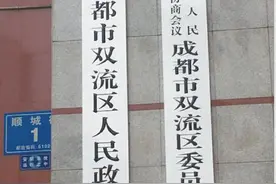 人民
协商会议
成都市双流区委员
都市双流区人民政
顺城
1